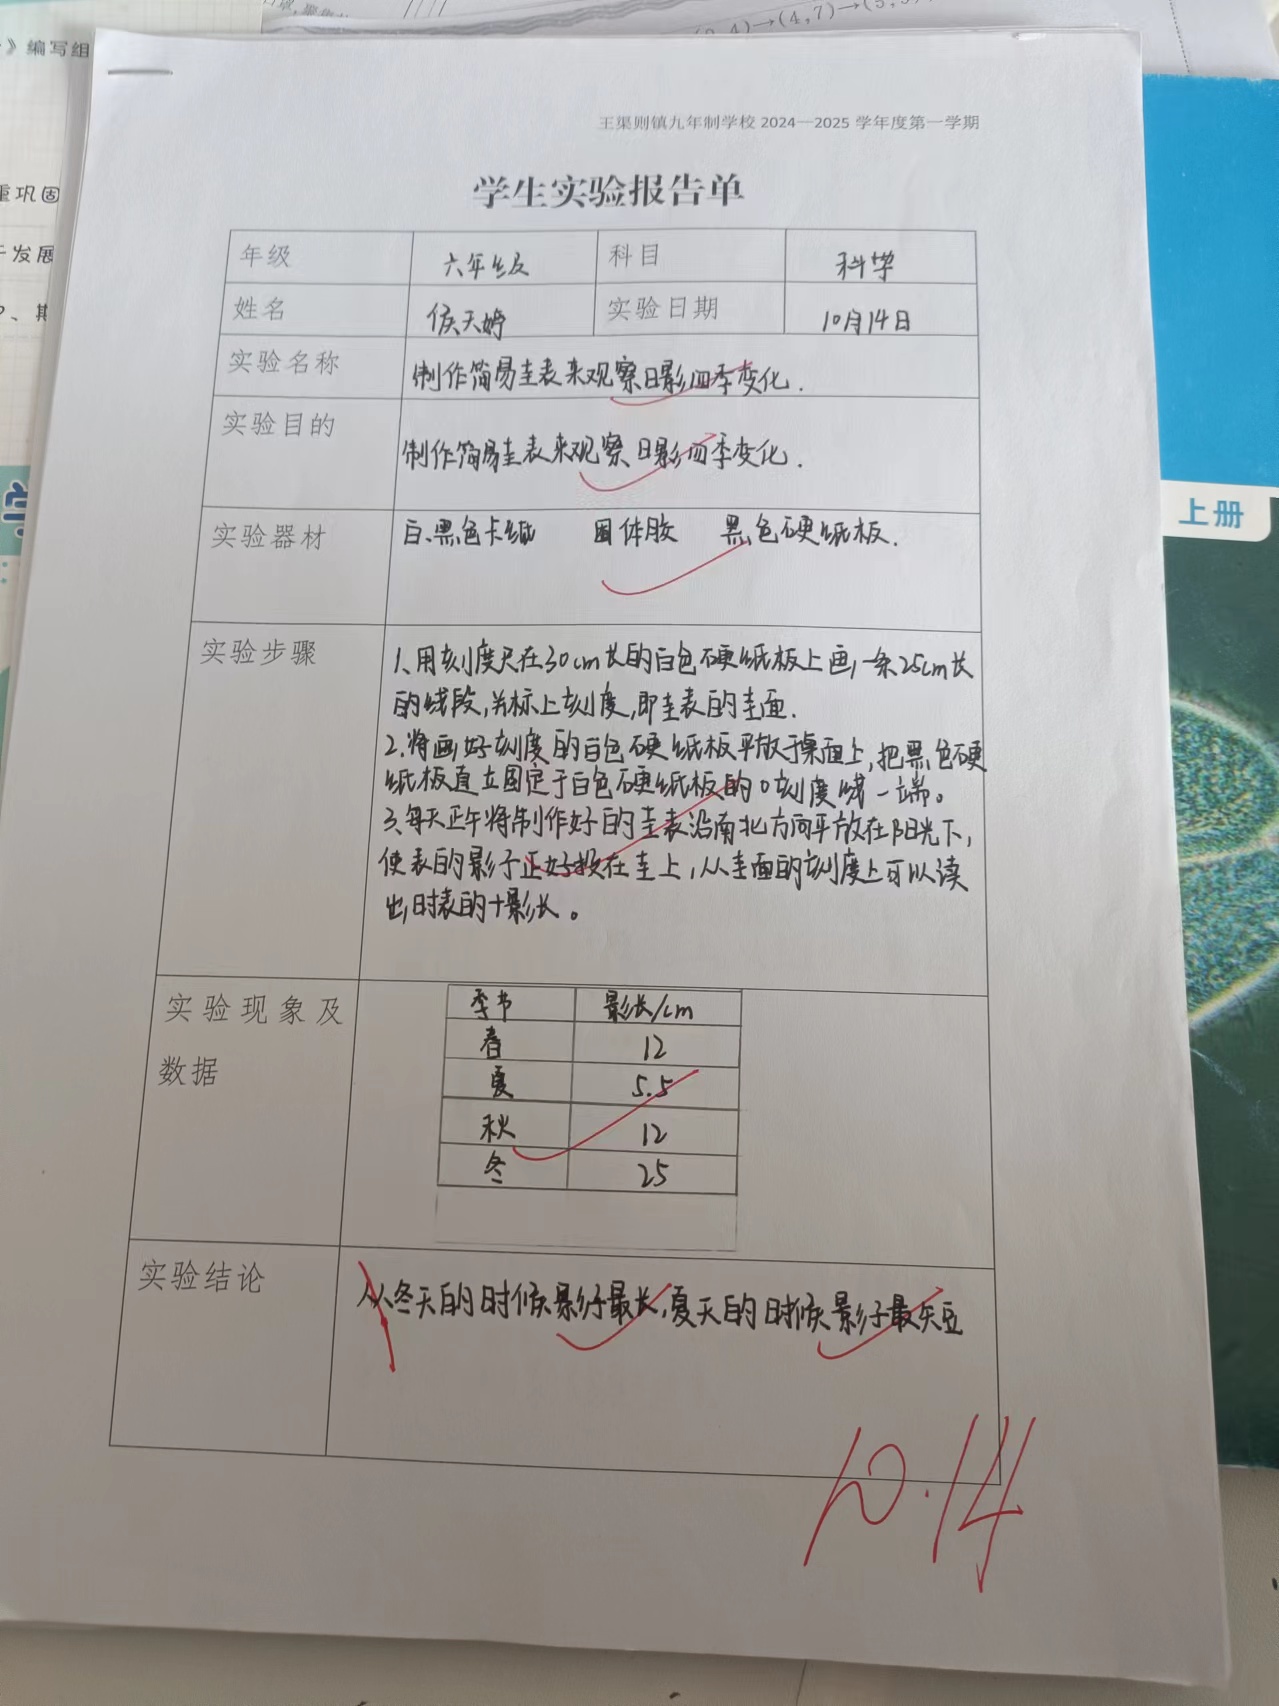 》编写组
(4,7)→(5,
重巩固
发展
上册
王渠则镇九年制学校 2024—2025 学年度第一学期
学生实验报告单
年级 六年级 科目 科学
姓名 侯天婷 实验日期 10月14日
实验名称 制作简易圭表来观察日影四季变化.
实验目的 制作简易圭表来观察日影四季变化.
实验器材 白、黑色卡纸 固体胶 黑色硬纸板.
实验步骤 1、用刻度尺在30cm长的白色硬纸板上画一条25cm长
的线段,并标上刻度,即圭表的圭面.
2.将画好刻度的白色硬纸板平放于桌面上,把黑色硬
纸板直立固定于白色硬纸板的0刻度线一端。
3、每天正午将制作好的圭表沿南北方向平放在阳光下,
使表的影子正好投在圭上,从圭面的刻度上可以读
出时表的影长。
实验现象及
数据
季节 影长/cm
春 12
夏 5.5
秋 12
冬 25
实验结论 从冬天的时候影子最长,夏天的时候影子最短
10.14